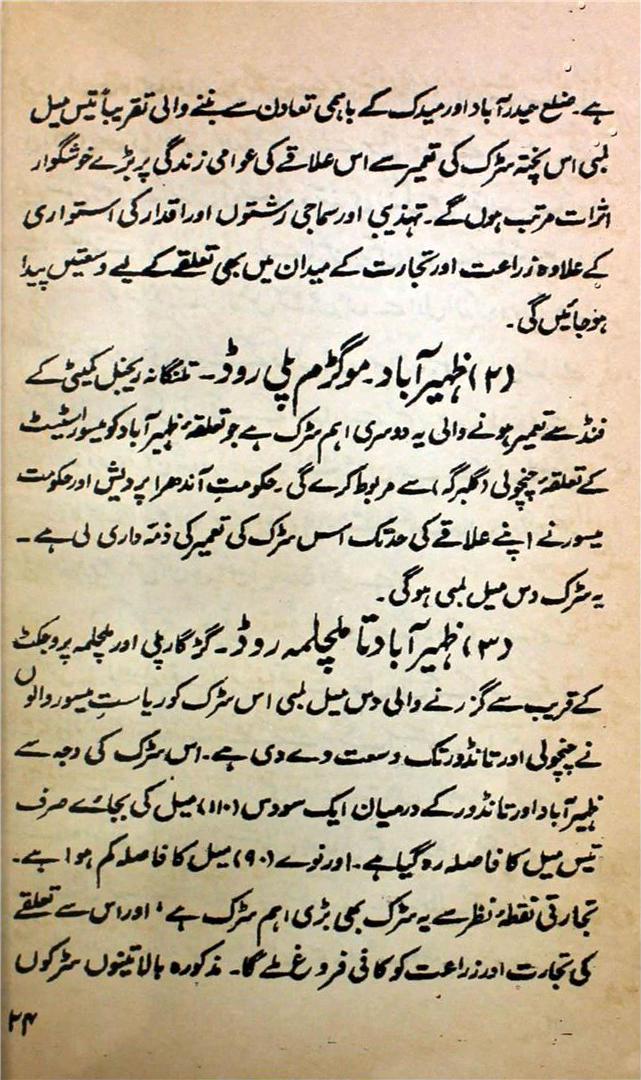 ہے۔ ضلع حیدرآباد اور میدک کے باہمی تعاون سے بننے والی تقریباً تیس میل
لمبی اس پختہ سڑک کی تعمیر سے اس علاقے کی عوامی زندگی پر بڑے خوشگوار
اثرات مرتب ہوں گے۔ تہذیبی اور سماجی رشتوں اور اقدار کی استواری
کے علاوہ زراعت اور تجارت کے میدان میں بھی تعلقے کے لیے وسعتیں پیدا
ہوجائیں گی۔
(۲) ظہیرآباد۔ موگڑم پلی روڈ۔ تلنگانہ ریجنل کمیٹی کے
فنڈ سے تعمیر ہونے والی یہ دوسری اہم سڑک ہے جو تعلقۂ ظہیرآباد کو میسور اسٹیٹ
کے تعلقۂ چنچولی (گلبرگہ) سے مربوط کرے گی۔ حکومتِ آندھرا پردیش اور حکومت
میسور نے اپنے علاقے کی حد تک اس سڑک کی تعمیر کی ذمہ داری لی ہے۔
یہ سڑک دس میل لمبی ہوگی۔
(۳) ظہیرآباد تا ملچلمہ روڈ۔ گڑگارپلی اور ملچلمہ پروجکٹ
کے قریب سے گزرنے والی دس میل لمبی اس سڑک کو ریاستِ میسور والوں
نے چنچولی اور تانڈور تک وسعت دے دی ہے۔ اس سڑک کی وجہ سے
ظہیرآباد اور تانڈور کے درمیان ایک سو دس (۱۱۰) میل کی بجائے صرف
تیس میل کا فاصلہ رہ گیا ہے۔ اور نوے (۹۰) میل کا فاصلہ کم ہوا ہے۔
تجارتی نقطۂ نظر سے یہ سڑک بھی بڑی اہم سڑک ہے، اور اس سے تعلقے
کی تجارت اور زراعت کو کافی فروغ ملے گا۔ مذکورہ بالا تینوں سڑکوں
۲۴